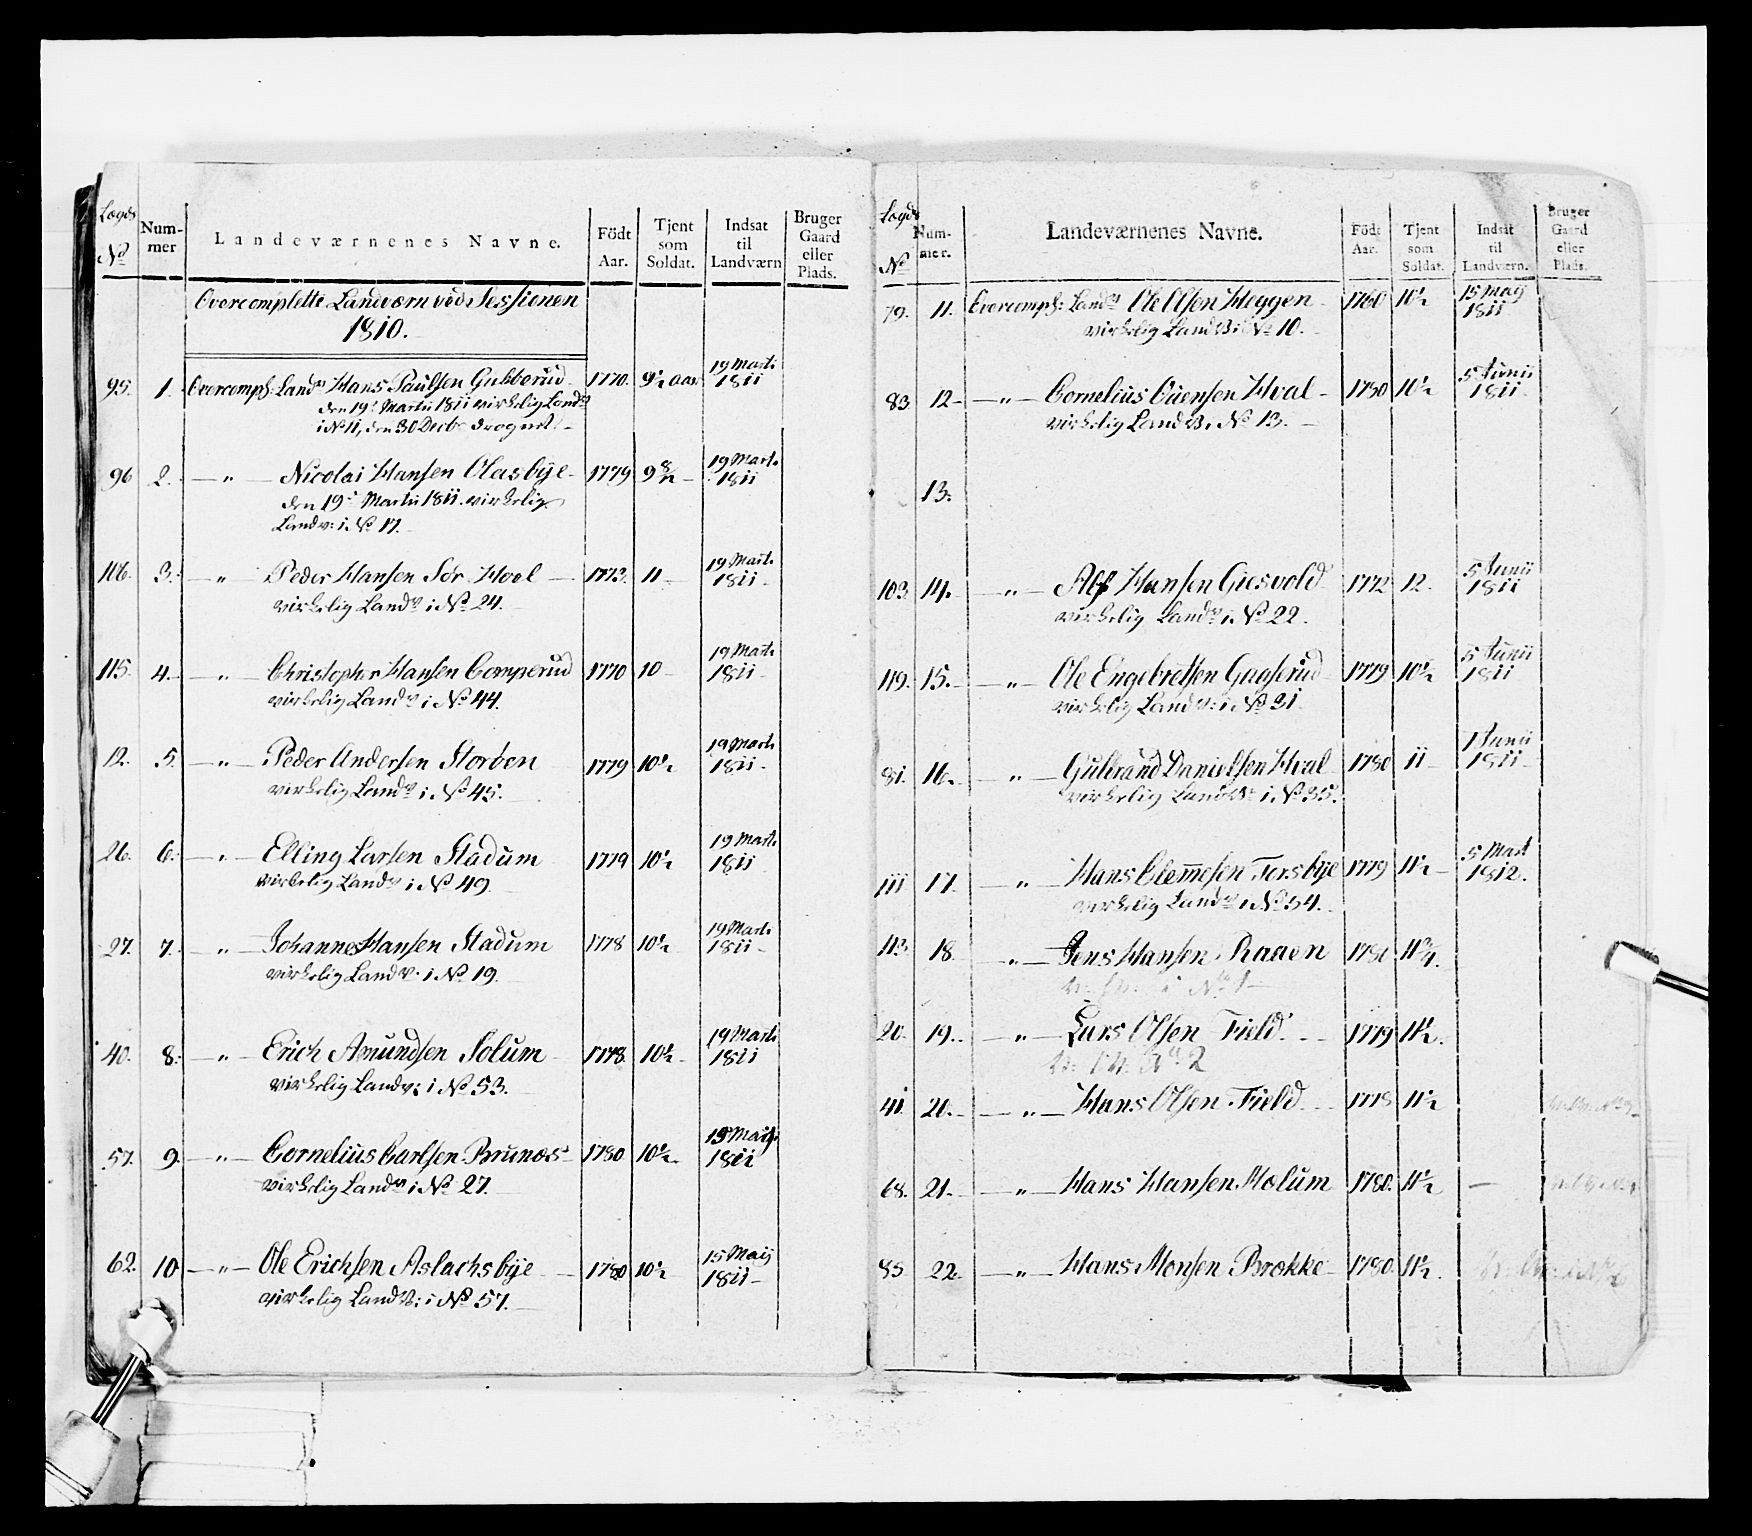 Lægds No Num-mer Landeværnenes Navne. Født Aar. Tjent som Soldat. Indsat til Landværn Bruger Gaard eller Plads.
Overcomplette Landværn ved Sessionen
1810.
95. 1. Overcompl: Landv Hans Paulsen Gubberud 1770. 9½ aar 19 Marti 1811
den 19 Martii 1811 virkelig Landv
i No 11, den 30 Decbr
96 2. — " — Nicolai Hansen Olasbye 1779 9 19 Marti 1811
den 19 Martii 1811. virkelig
Landv: i No 17.
106. 3. — " Peder Hansen Sør Hoel 1773. 11 19 Marti 1811
virkelig Landv i No 24.
115. 4. — " — Christopher Hansen Comperud 1770 10 19 Marti 1811
virkelig Landv i No 44.
12. 5. — " — Peder Andersen Storben 1779 10½ 19 Marti 1811
virkelig Landv i No 45.
26. 6. — " — Elling Larsen Stadum 1779 10½ 19 Marti 1811
virkelig Landv i No 49.
27. 7. — " — Johannes Hansen Stadum 1778 10½ 19 Marti 1811
virkelig Landv. i No 19.
40. 8. — " — Erich Amundsen Solum 1778. 10½ 19 Marti 1811
virkelig Landv: i No 53.
57. 9. — " — Cornelius Carlsen Brunæs 1780 10½ 15 Maij 1811
virkelig Landv i No 27.
62. 10 — " — Ole Erichsen Aslachsbye 1780 10½ 15 Maij 1811
virkelig Landv: i No 57.
Lægds No Num-mer. Landeværnenes Navne. Født Aar. Tjent som Soldat. Indsat til Landværn. Bruger Gaard eller Plads.
79. 11. Overcompl: Landv Ole Olsen Heggen 1760 10½ 15 Maij 1811
virkelig Landv i No 10.
83. 12 — " — Cornelius Evensen Hval 1780 10½ 5 Junii 1811
virkelig Landv. i No 13.
13.
103 14. — " — Alf Hansen Giesvold 1772 12. 5 Junii 1811
virkelig Landv i No 22.
119. 15. — " — Ole Engebretsen Gagserud 1779 10½ 5 Junii 1811
virkelig Landv: i No 31
81. 16. — " — Gulbrand Danielsen Hval 1780 11 1 Junii 1811
virkelig Landv: i No 35.
111 17. — " — Hans Clemesen Forsbye 1779 11½ 5 Mart 1812.
virkelig Landv i No 54.
113. 18. — " — Jens Hansen Raaen 1781 11¾.
i No 1
20. 19. — " — Lars Olsen Field 1779 11½.
No 2
41. 20. — " — Hans Olsen Field 1778 11½
68. 21. — " — Hans Hansen Molum 1780. 11½ —
85 22. — " — Hans Monsen Brokke 1780. 11½.